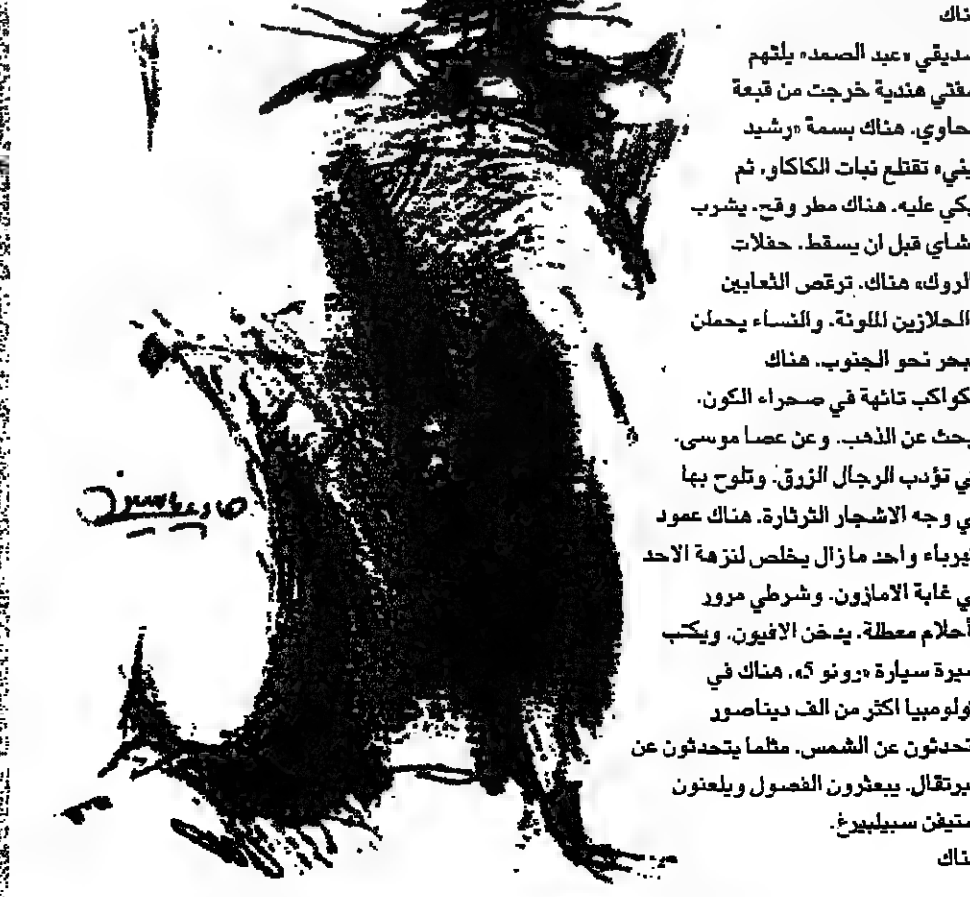 ناك
صديقي «عبد الصمد» يلتهم
هندية خرجت من قبعة
حاوي. هناك بسمة «رشيد
يني» تقتلع نبات الكاكاو. ثم
بكي عليه. هناك مطر وقح. يشرب
شاي قبل ان يسقط. حفلات
لروك» هناك. ترقص الثعابين
الحلازين الملونة. والنساء يحملن
بحر نحو الجنوب. هناك
كواكب تائهة في صحراء الكون.
بحث عن الذهب. وعن عصا موسى.
ي تؤدب الرجال الزرق. وتلوح بها
ي وجه الاشجار الثرثارة. هناك عمود
هرباء واحد مازال يخلص لنزهة الاحد
ي غابة الامازون. وشرطي مرور
أحلام معطلة. يدخن الافيون. ويكتب
سيرة سيارة «رونو 5». هناك في
ولومبيا اكثر من الف ديناصور
تحدثون عن الشمس. مثلما يتحدثون عن
برتقال. يبعثرون الفصول ويلعنون
ستيفن سبيلبيرغ.
ناك